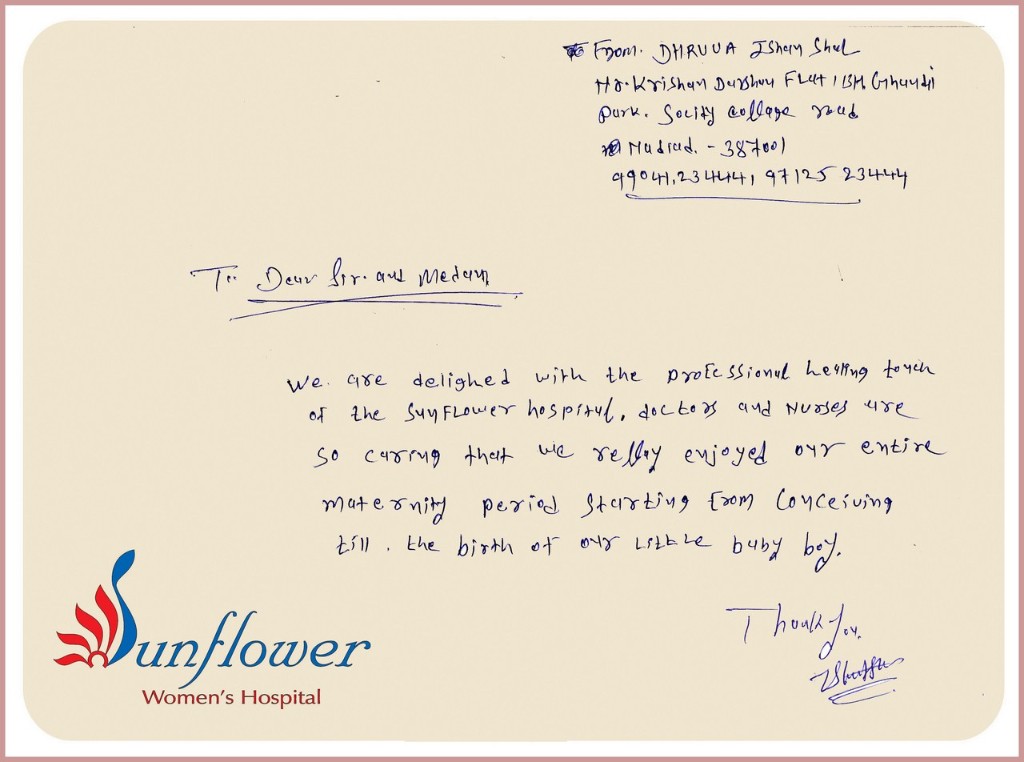 From. DHRUVA Ishan Shah
Nr. Krishan Darshan Flat, BH. Ghandhi
Park. Socity collage road
Nadiad. - 387001
99041,23444, 97125 23444
To. Dear Sir. and Medam
We. are delighed with the professional healing touch
of the Sunflower hospital, doctors and Nurses are
so caring that we rellay enjoyed our entire
maternity period starting from conceiving
till . the birth of our Little baby boy.
Thank You.
Sunflower
Women's Hospital